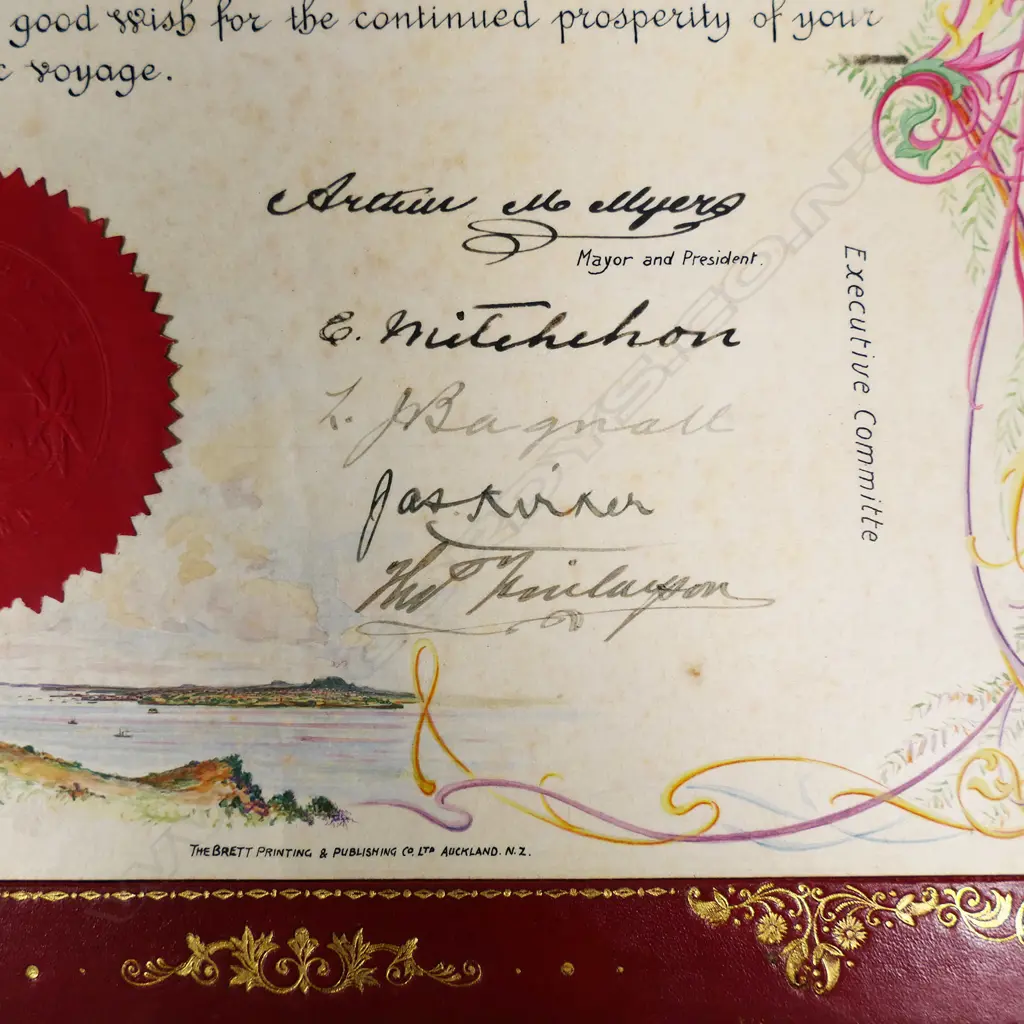 good wish for the continued prosperity of your
voyage.
Arthur M. Myers
Mayor and President.
E. Mitchelson
L. J Bagnall
Jas Kirker
Thos Finlayson
Executive Committe
THE BRETT PRINTING & PUBLISHING CO. LTD AUCKLAND. N.Z.